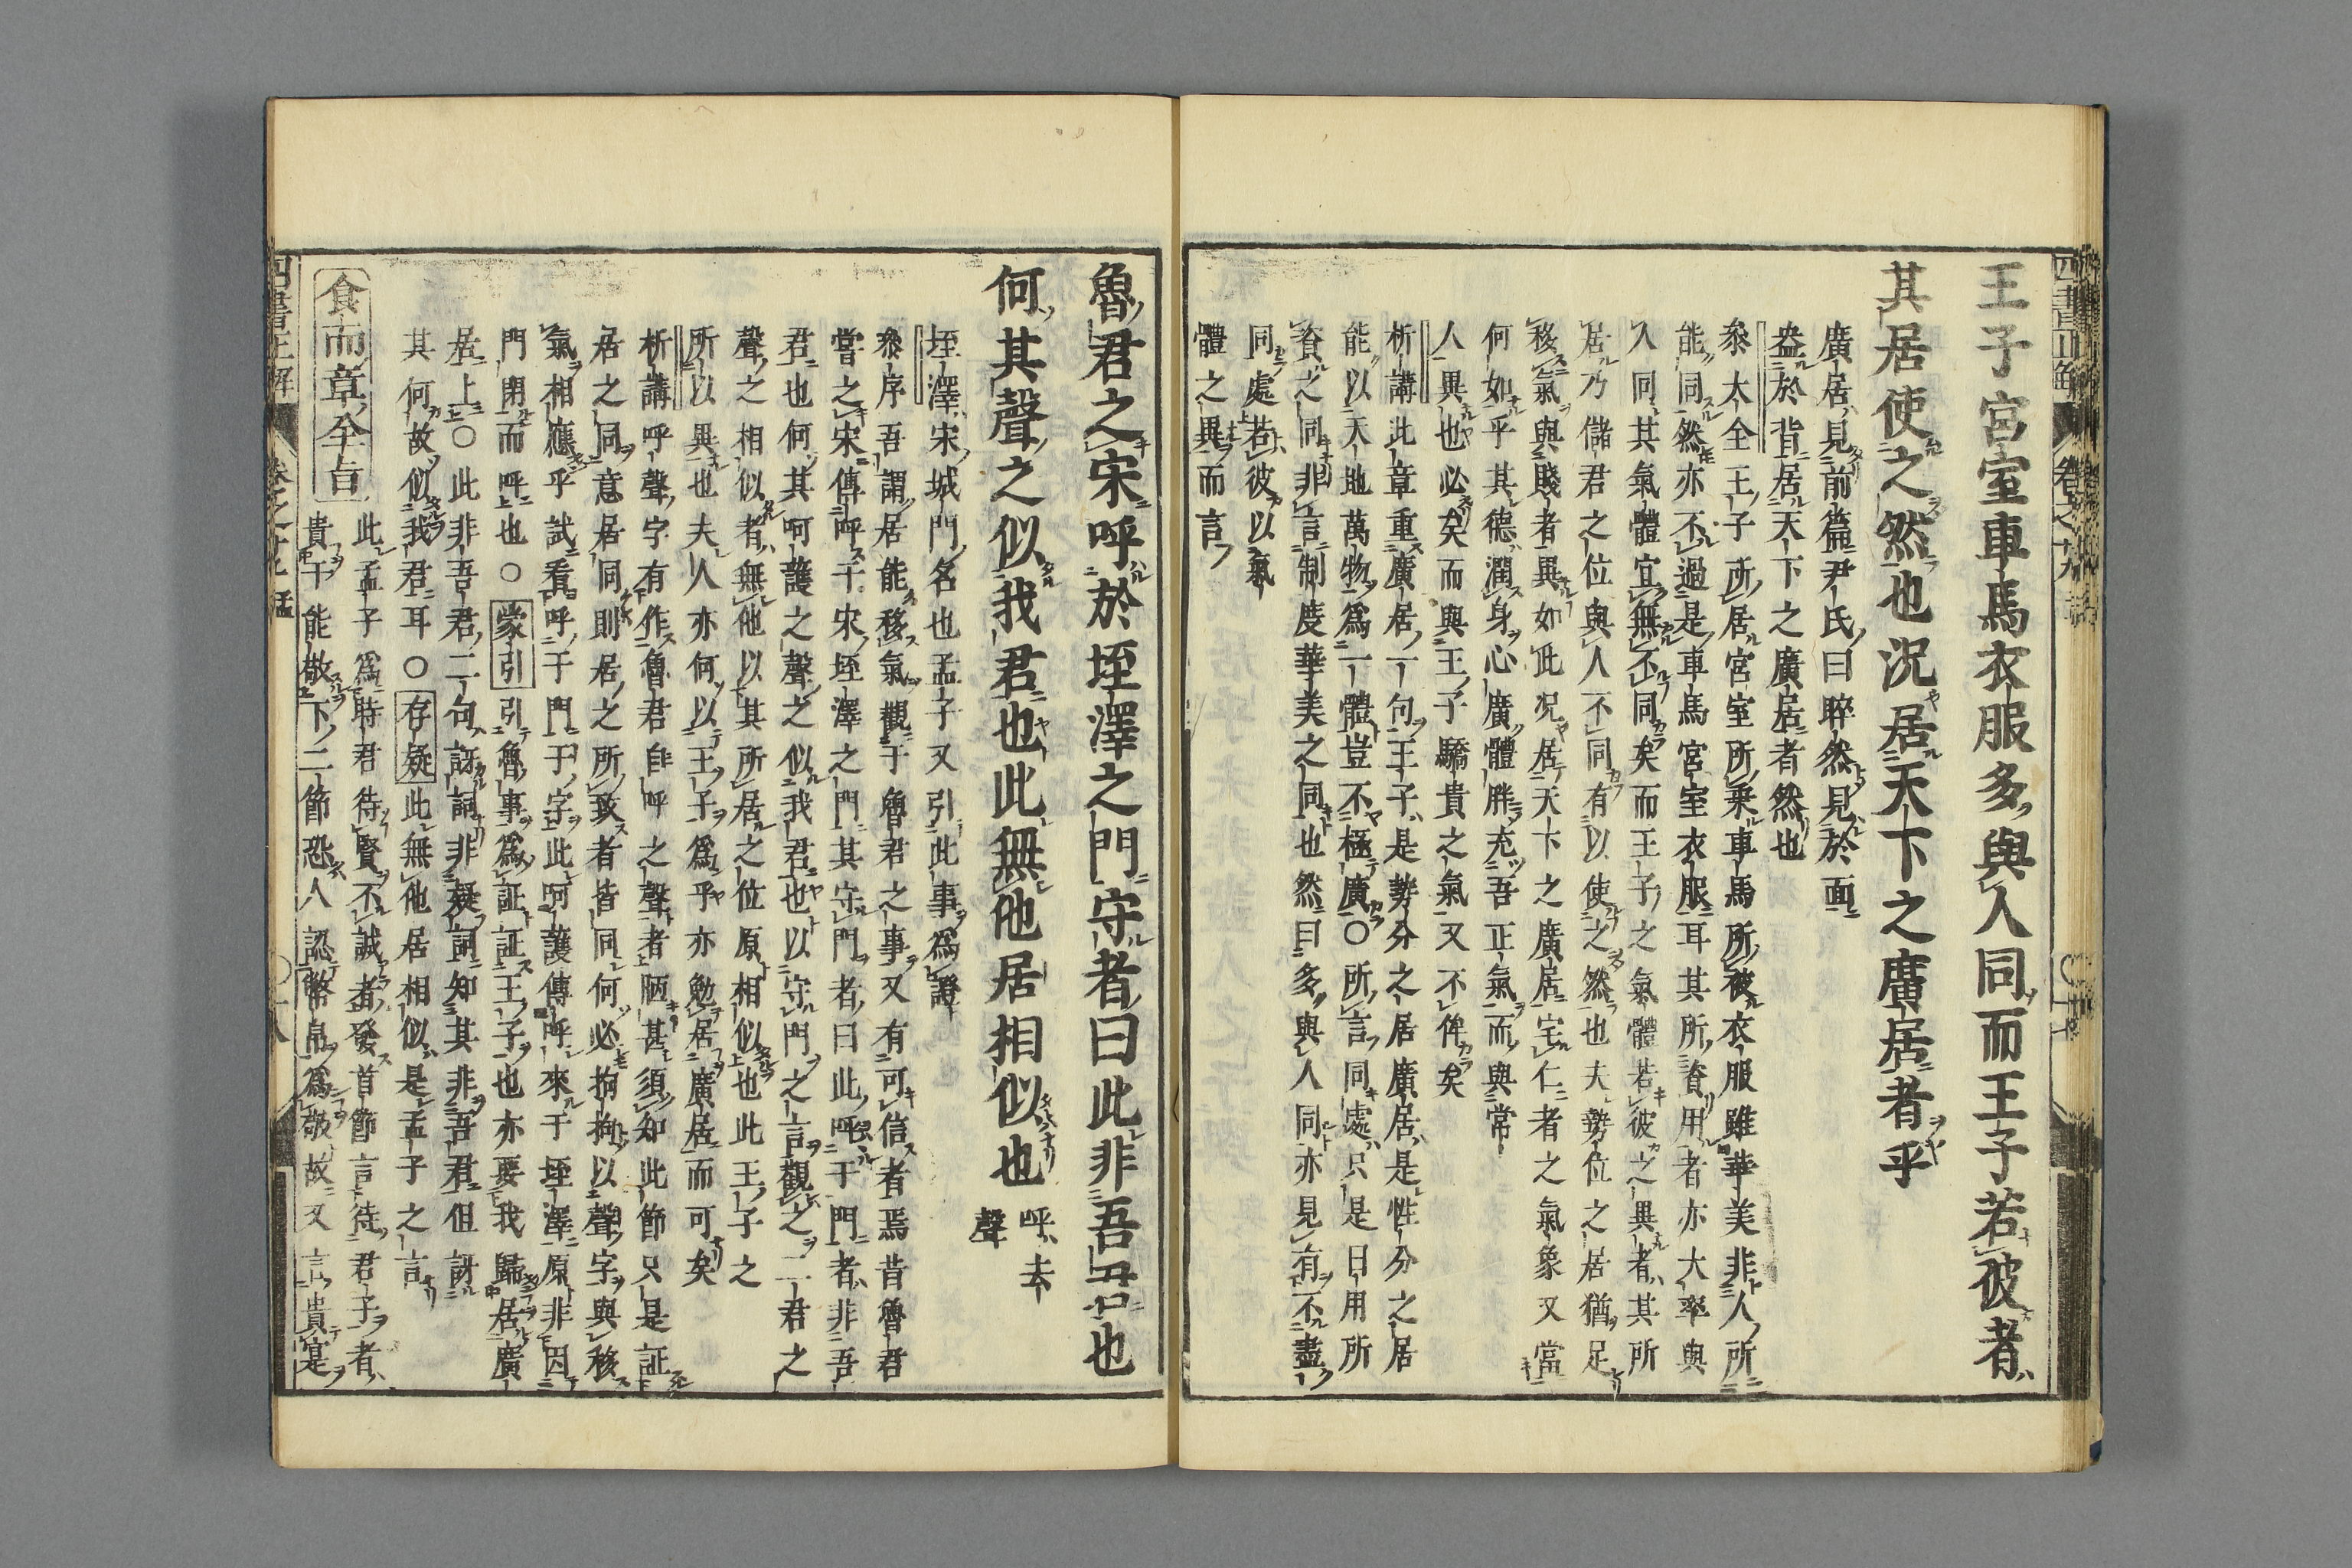 王子宮室車馬衣服多與人同而王子若彼者
其居使之然也況居天下之廣居者乎
廣居見前篇尹氏曰睟然見於面
盎於背居天下之廣居者然也
叅太全王子所居宮室所乗車馬所被衣服雖華美非人所
能同然亦不過是車馬宮室衣服耳其所資用者亦大率與
人同其氣體宜無不同矣而王子之氣體若彼之異者其所
居乃儲君之位與人不同有以使之然也夫勢位之居猶足
移氣與賤者異如此況居天下之廣居宅仁者之氣象又當
何如乎其德潤身心廣體胖充吾正氣而與常
人異也必矣而與王子驕貴之氣又不侔矣
析講此章重廣居一句王子是勢分之居廣居是性分之居
能以天地萬物爲一體豈不極廣○所言同處只是日用所
資之同非言制度華美之同也然曰多與人同亦見有不盡
同處若彼以氣
體之異而言
魯君之宋呼於垤澤之門守者曰此非吾君也
何其聲之似我君也此無他居相似也 呼去
聲
垤澤宋城門名也孟子又引此事爲證
叅序吾謂居能移氣觀于魯君之事又有可信者焉昔魯君
嘗之宋傳呼于宋垤澤之門其守門者曰此呼于門者非吾
君也何其呵護之聲之似我君也以守門之言觀之二君之
聲之相似者無他以其所居之位原相似也此王子之
所以異也夫人亦何以王子爲乎亦勉居廣居而可矣
析講呼聲字有作魯君自呼之聲者陋甚須知此節只是証
居之同意居同則居之所致者皆同何必拘拘以聲字與移
氣相應乎試看呼于門于字此呵護傳呼來于垤澤原非因
門閉而呼也○蒙引引魯事爲証証王子也亦要我歸居廣
居上○此非吾君二句訝詞非疑詞知其非吾君但訝
其何故似我君耳○存疑此無他居相似是孟子之言
食而章全旨 此孟子爲時君待賢不誠者發首節言待君子者
貴于能敬下二節恐人認幣帛爲敬故又言貴寔